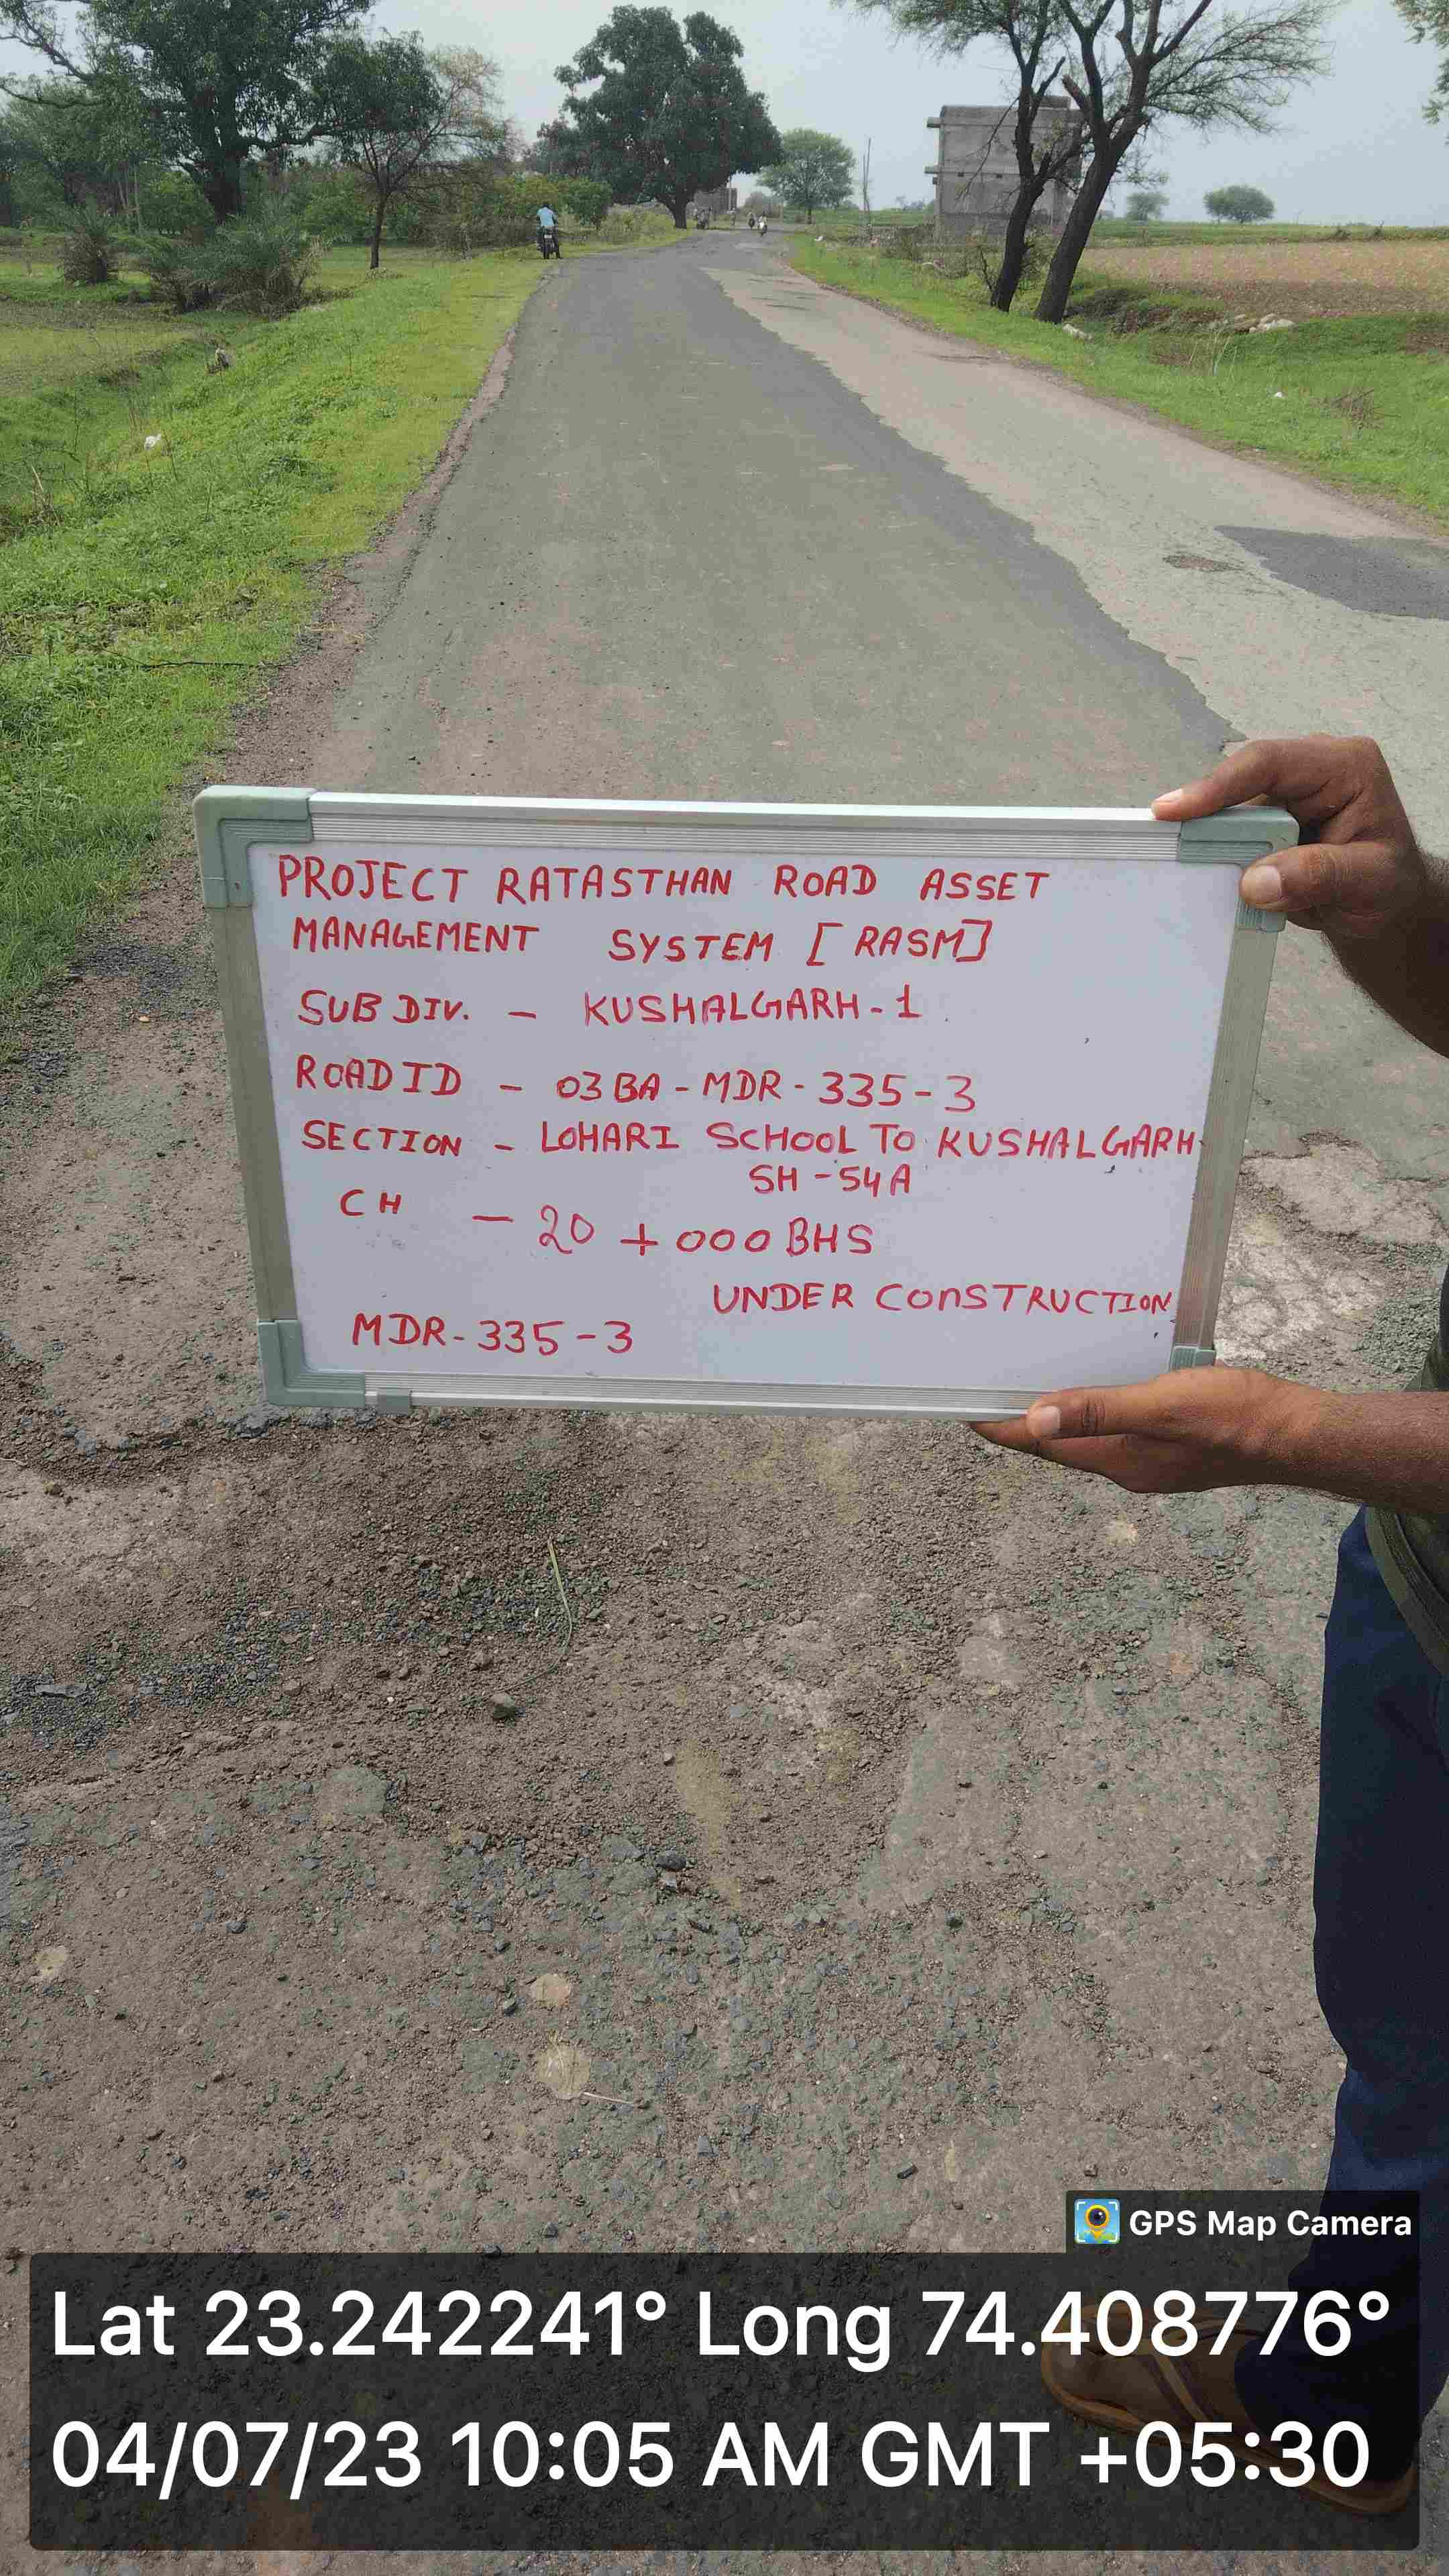 PROJECT RATASTHAN ROAD ASSET
MANAGEMENT SYSTEM [RASM]
SUB DIV. - KUSHALGARH-1
ROAD ID - 03BA-MDR-335-3
SECTION - LOHARI SCHOOL TO KUSHALGARH
SH-54A
CH - 20+000 BHS
UNDER CONSTRUCTION
MDR-335-3
GPS Map Camera
Lat 23.242241° Long 74.408776°
04/07/23 10:05 AM GMT +05:30